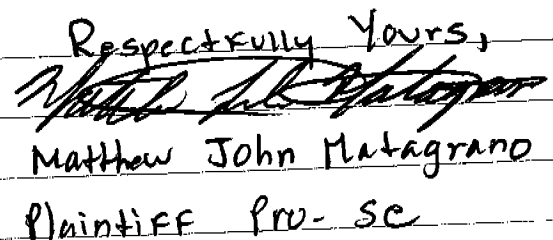 Respectfully Yours,
Matthew John Matagrano
Matthew John Matagrano
Plaintiff Pro-se